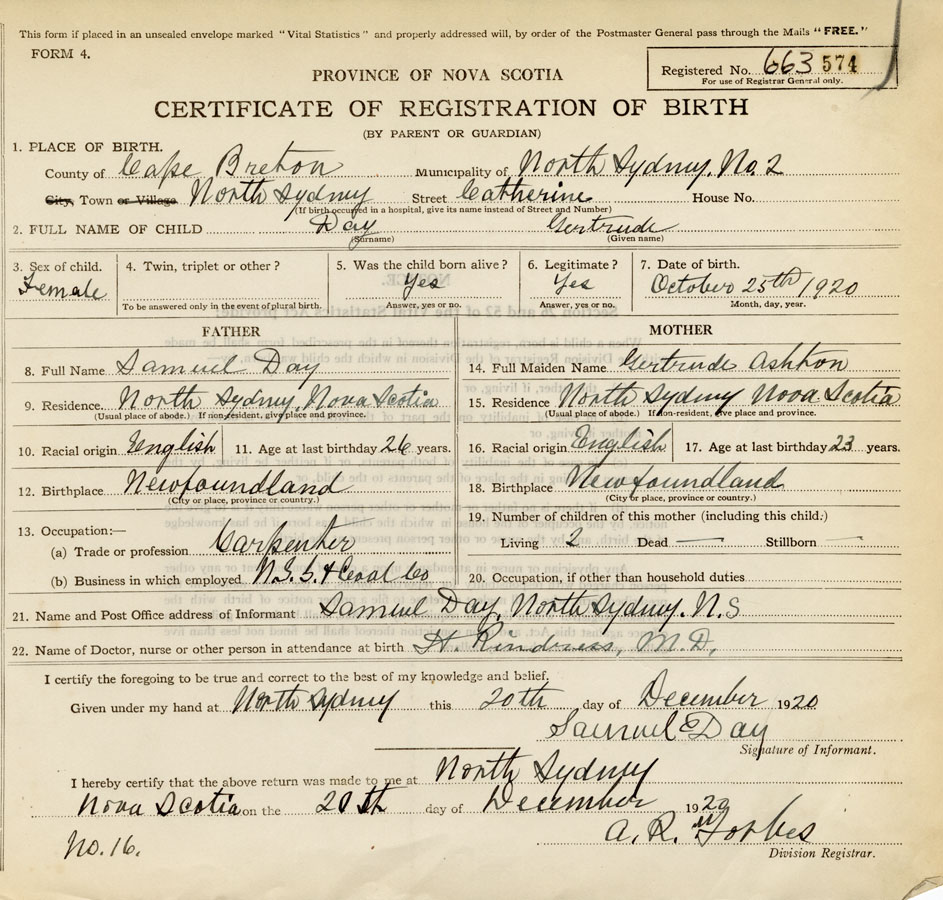 This form if placed in an unsealed envelope marked "Vital Statistics" and properly addressed will, by order of the Postmaster General pass through the Mails "FREE."
FORM 4.
Registered No. 663 574
For use of Registrar General only.
PROVINCE OF NOVA SCOTIA
CERTIFICATE OF REGISTRATION OF BIRTH
(BY PARENT OR GUARDIAN)
1. PLACE OF BIRTH.
County of Cape Breton Municipality of North Sydney. No. 2
City, Town or Village North Sydney Street Catherine House No.
(If birth occurred in a hospital, give its name instead of Street and Number)
2. FULL NAME OF CHILD Day Gertrude
(Surname) (Given name)
3. Sex of child. 4. Twin, triplet or other? 5. Was the child born alive? 6. Legitimate? 7. Date of birth.
Female Yes Yes October 25th 1920
To be answered only in the event of plural birth. Answer, yes or no. Answer, yes or no. Month, day, year.
FATHER MOTHER
8. Full Name Samuel Day 14. Full Maiden Name Gertrude Ashton
9. Residence. North Sydney, Nova Scotia 15. Residence North Sydney Nova Scotia
(Usual place of abode.) If non-resident, give place and province. (Usual place of abode.) If non-resident, give place and province.
10. Racial origin English 11. Age at last birthday 26 years. 16. Racial origin English 17. Age at last birthday 23 years.
12. Birthplace Newfoundland 18. Birthplace Newfoundland
(City or place, province or country.) (City or place, province or country.)
13. Occupation:— 19. Number of children of this mother (including this child.)
(a) Trade or profession Carpenter Living 2 Dead — Stillborn —
(b) Business in which employed N.S.S. & Coal Co 20. Occupation, if other than household duties
21. Name and Post Office address of Informant Samuel Day, North Sydney. N.S
22. Name of Doctor, nurse or other person in attendance at birth H. Rindress, M.D.
I certify the foregoing to be true and correct to the best of my knowledge and belief.
Given under my hand at North Sydney this 20th day of December 1920
Samuel Day
Signature of Informant.
I hereby certify that the above return was made to me at North Sydney
Nova Scotia on the 20th day of December 1920
No. 16. A. R. Forbes
Division Registrar.